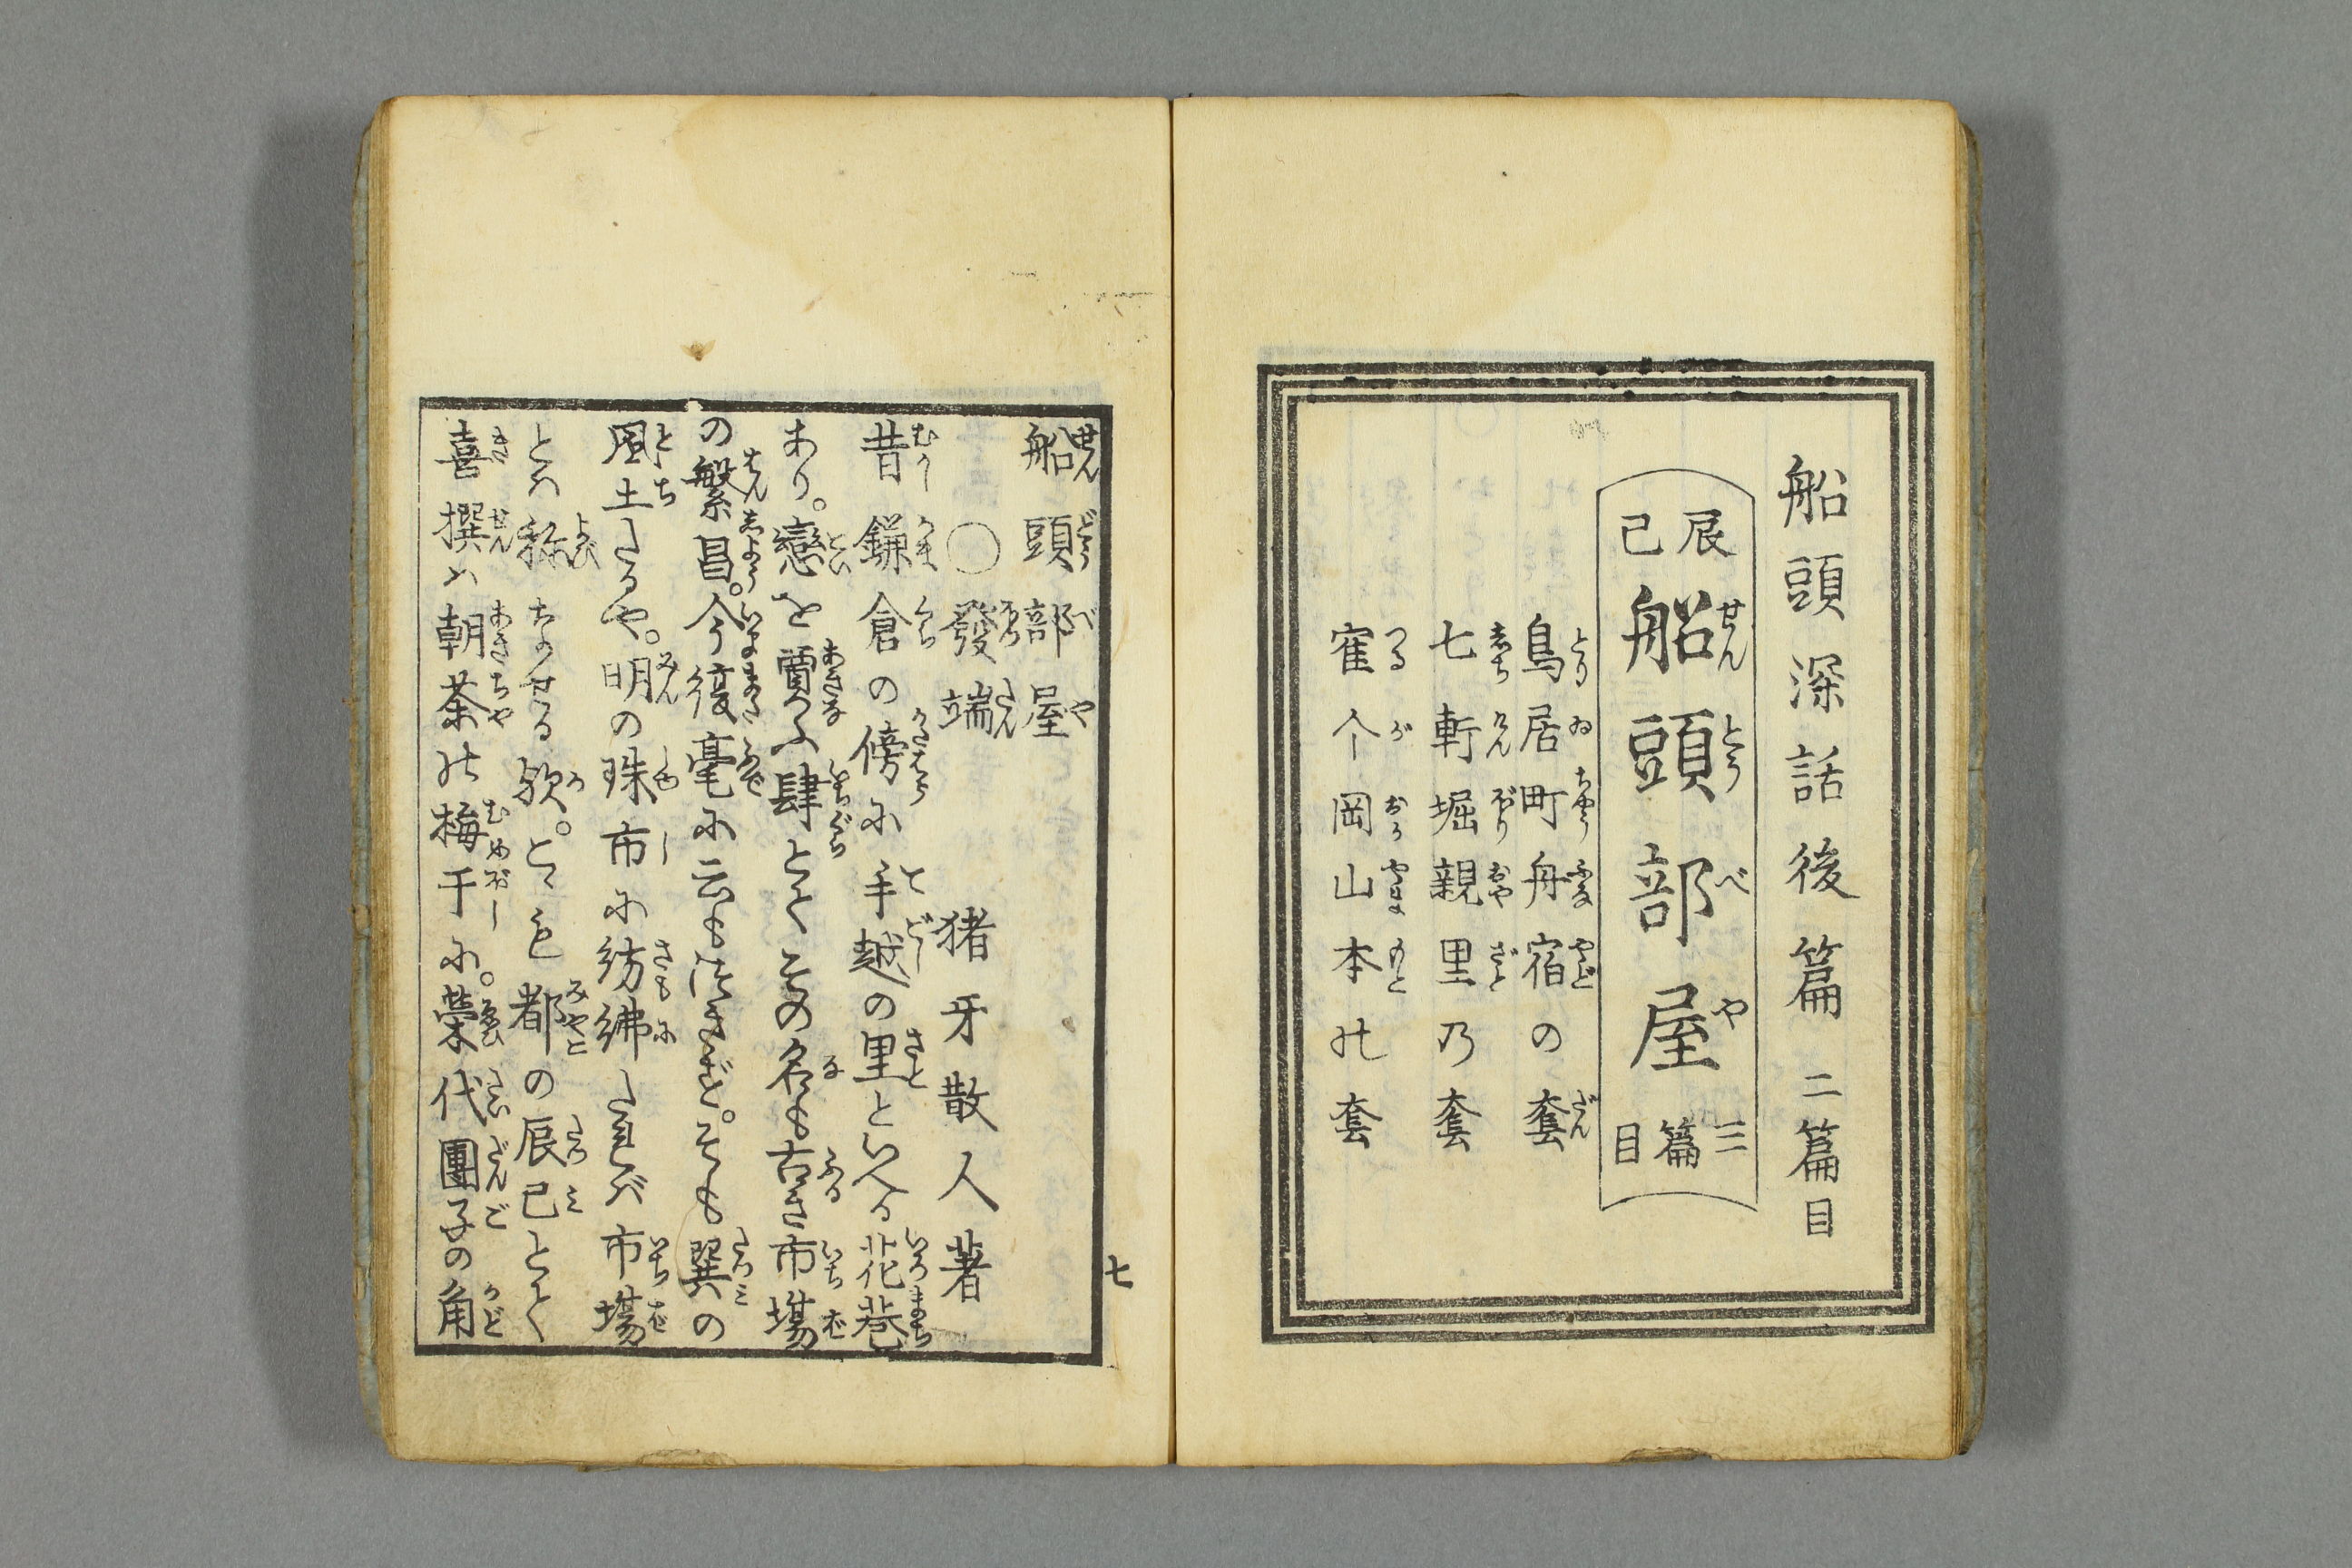 船頭深話後篇 二篇目
辰巳 船頭部屋 三篇目
鳥居町舟宿の套
七軒堀親里乃套
寉个岡山本の套
船頭部屋
○發端 猪牙散人著
昔鎌倉の傍に手越の里といへる花巷
あり。戀を賣ふ肆とてその名も古き市場
の繁昌。今復毫に云もつきざれど。そも巽の
風土たるや。明の珠市に紡紼たれば市場
とハ称ちかせる歟。とゝも都の辰巳とて
喜撰ハ朝茶の梅干に。榮代團子の角
七